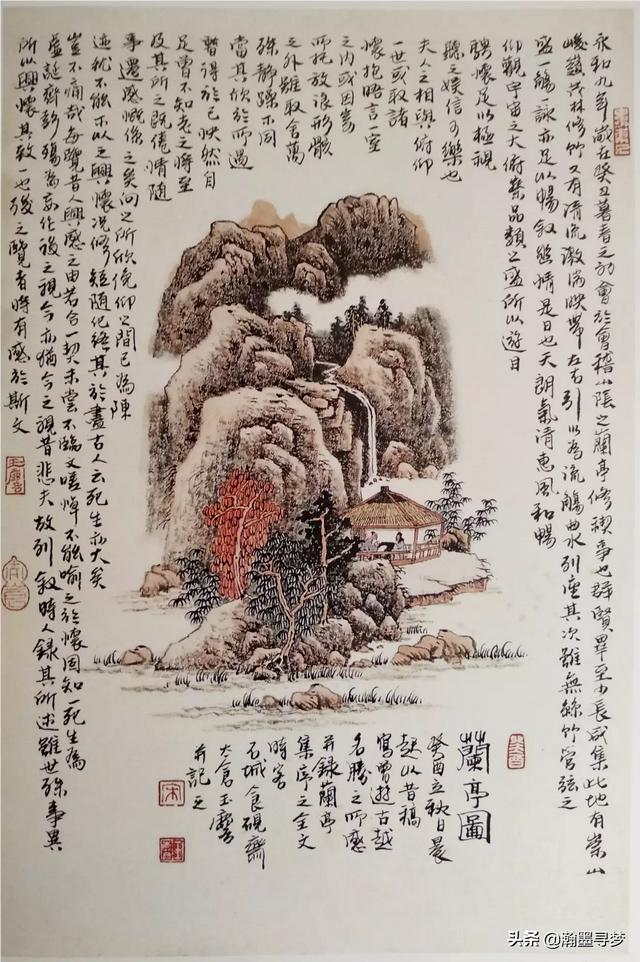 永和九年歲在癸丑暮春之初會於會稽山陰之蘭亭修禊事也群賢畢至少長咸集此地有崇山
峻嶺茂林修竹又有清流激湍映帶左右引以為流觴曲水列座其次雖無絲竹管弦之
盛一觴詠亦足以暢敘幽情是日也天朗氣清惠風和暢
仰觀宇宙之大俯察品類之盛所以遊目
騁懷足以極視
聽之娛信可樂也
夫人之相與俯仰
一世或取諸
懷抱晤言一室
之內或因寄
所托放浪形骸
之外雖取舍萬
殊靜躁不同
當其欣於所遇
暫得於己怏然自
足曾不知老之將至
及其所之既倦情隨
事遷感慨係之矣向之所欣俛仰之間已為陳
迹猶不能不以之興懷況修短隨化終其於盡古人云死生亦大矣
豈不痛哉每覽昔人興感之由若合一契未嘗不臨文嗟悼不能喻之於懷固知一死生為
虛誕齊彭殤為妄作後之視今亦猶今之視昔悲夫故列敘時人錄其所述雖世殊事異
所以興懷其致一也後之覽者時有感於斯文
蘭亭圖
癸酉立秋日晨
起以昔稿
寫曾遊古越
名勝之所感
并錄蘭亭
集序之全文
時客
石城食硯齋
大倉玉麐
并記之
宋
头条 @瀚墨寻梦